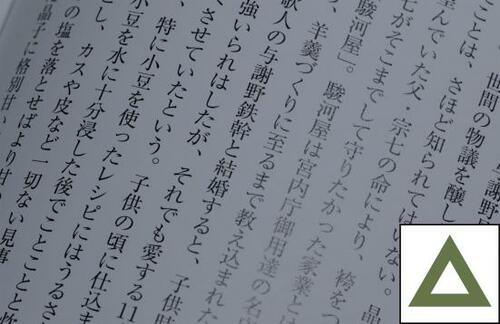 与謝野
世間の物議を醸し
ことは、さほど知られてはいない。晶
望んでいた父・宗七の命により、袴をつ
七がそこまでして守りたかった家業とは
駿河屋」。駿河屋は宮内庁御用達の名店
、羊羹づくりに至るまで教え込まれた
歌人の与謝野鉄幹と結婚すると、子供時
強いられはしたが、それでも愛する11
くさせていたという。子供の頃に仕込ま
、特に小豆を使ったレシピにはうるさ
小豆を水に十分浸した後でことことと炊
とし、カスや皮など一切ない見事
の塩を落とせばより甘
晶子に格別甘い